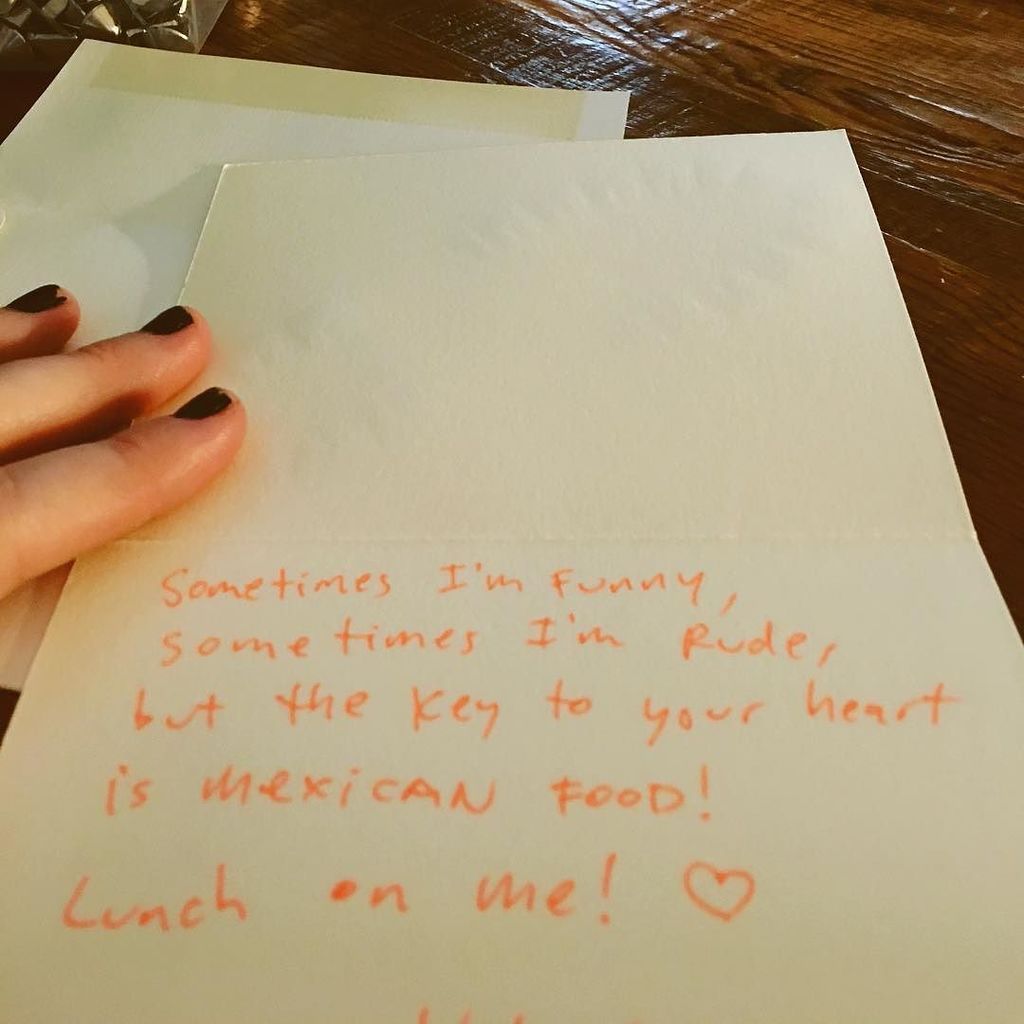 Sometimes I'm Funny,
sometimes I'm Rude,
but the key to your heart
is mexiCAN FOOD!
Lunch on me! ♡